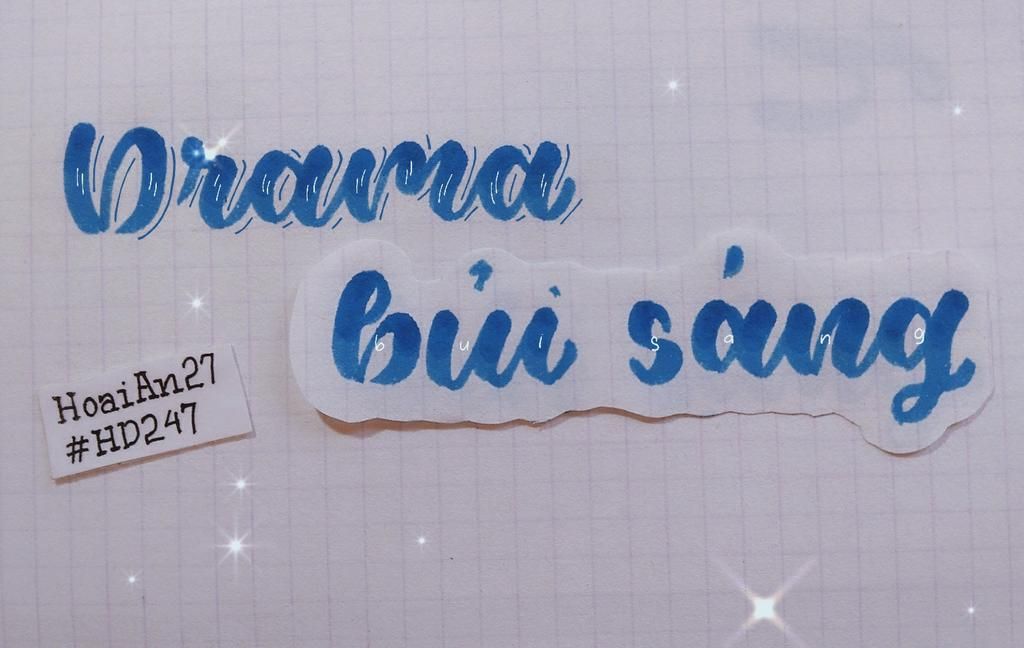 Drama
bủi sáng
b u i s a n g
HoaiAn27
#HD247